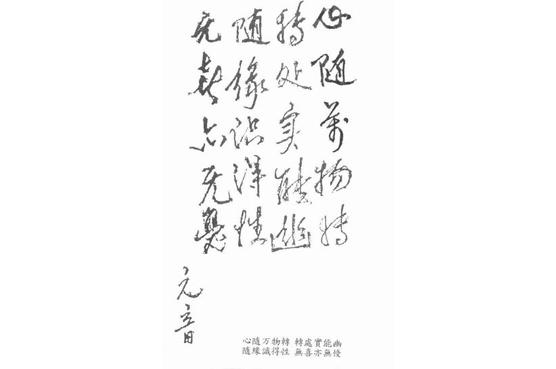 心随萬物转
转处实能幽
随缘识得性
无喜亦无憂
元音
心隨万物轉 轉處實能幽
隨緣識得性 無喜亦無優